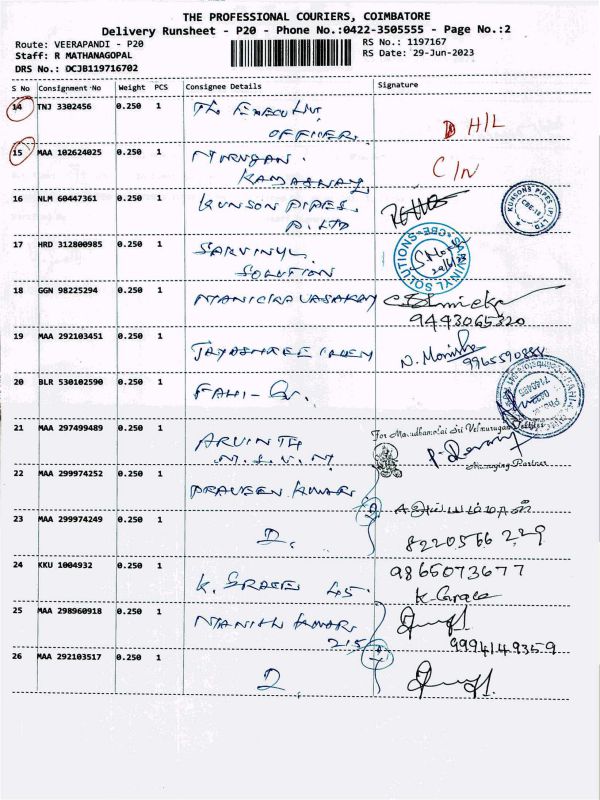 THE PROFESSIONAL COURIERS, COIMBATORE
Delivery Runsheet - P20 - Phone No.:0422-3505555 - Page No.:2
Route: VEERAPANDI - P20
RS No.: 1197167
Staff: R MATHANAGOPAL
RS Date: 29-Jun-2023
DRS No.: DCJB119716702
S No Consignment No Weight PCS Consignee Details Signature
14 TNJ 3302456 0.250 1 The Executive
OFFICER
D H/L
15 MAA 102624025 0.250 1 MURUGAN
C/N
16 NLM 60447361 0.250 1 KUNSON PIPES
P. LTD
KUNSONS PIPES (P) LTD
CBE-18
17 HRD 312800985 0.250 1 SARVINYL
SOLUTION
SANINYL SOLUTIONS CBE
18 GGN 98225294 0.250 1 MANICKAVASAKAM
9443065320
19 MAA 292103451 0.250 1 JAYASHREE
N. Monisha
20 BLR 530102590 0.250 1
21 MAA 297499489 0.250 1 ARVINTH
For Marudhamalai Sri Velmurugan
Managing Partner
22 MAA 299974252 0.250 1 PRAVEEN KUMAR
23 MAA 299974249 0.250 1 2.
8220566229
24 KKU 1004932 0.250 1 K. GRACE 45
9865073677
K. Grace
25 MAA 298960918 0.250 1 MANISH KUMAR
215
9994149359
26 MAA 292103517 0.250 1 2